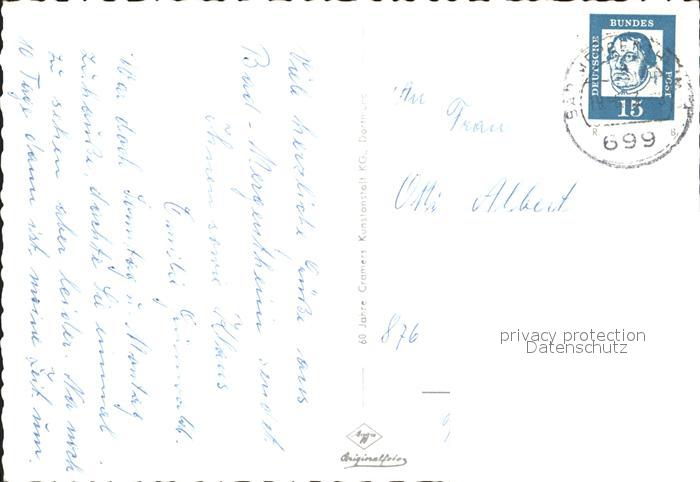 Viele herzliche Grüße aus
Bad-Mergentheim sendet
Ihnen sowie Klaus
Emilie Grunwald.
War doch Sonntag u. Montag
zuhause, dachte Sie einmal
zu sehen aber leider. Na noch
10 Tage dann ist meine Zeit um.
60 Jahre Cramers Kunstanstalt KG., Dortmund
Originalfoto
An Frau
Otti Albert
876
DEUTSCHE
BUNDES
POST
15
BAD MERGENTHEIM
699
privacy protection
Datenschutz